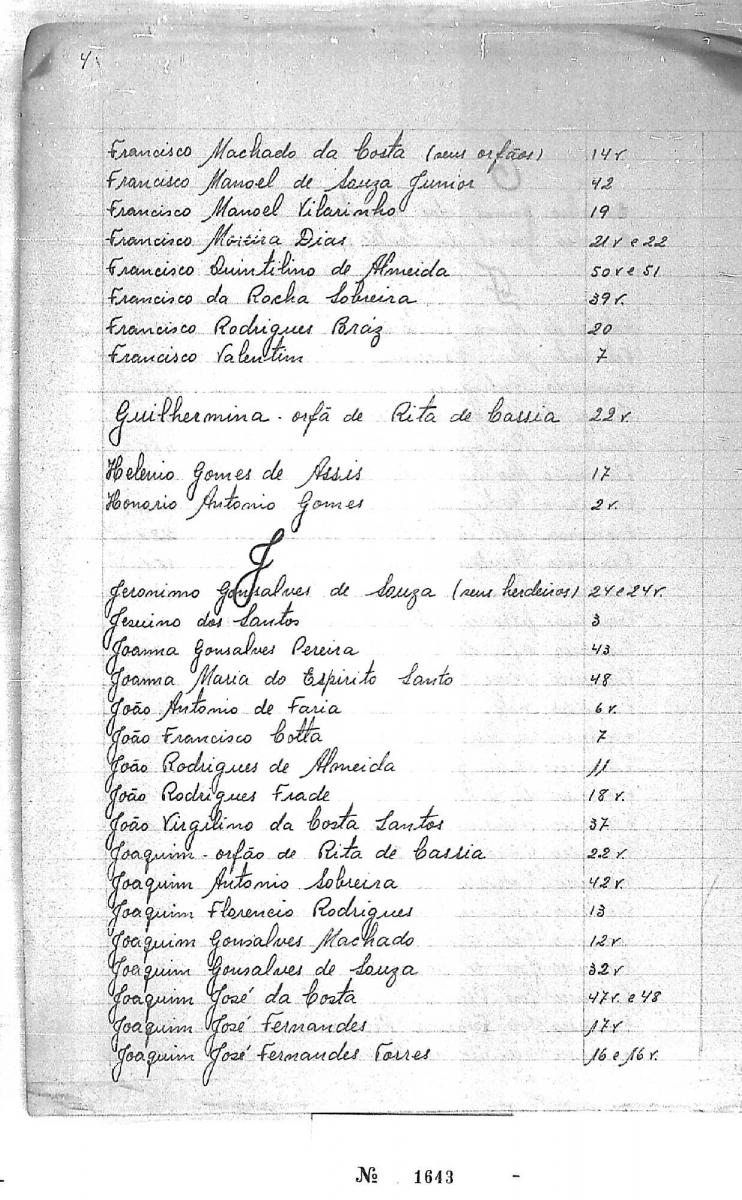 4
Francisco Machado da Costa (seus orfãos) 14v.
Francisco Manoel de Souza Junior 42
Francisco Manoel Vilarinho 19
Francisco Moreira Dias 21v e 22
Francisco Quintilino de Almeida 50v e 51
Francisco da Rocha Sobreira 39v.
Francisco Rodrigues Bráz 20
Francisco Valentim 7
Guilhermina - orfã de Rita de Cassia 22v.
Helenio Gomes de Assis 17
Honorio Antonio Gomes 2v.
J
Jeronimo Gonsalves de Souza (seus herdeiros) 24 e 24v.
Jesuino dos Santos 3
Joanna Gonsalves Pereira 43
Joanna Maria do Espirito Santo 48
João Antonio de Faria 6v.
João Francisco Cotta 7
João Rodrigues de Almeida 11
João Rodrigues Frade 18v.
João Virgilino da Costa Santos 37
Joaquim - orfão de Rita de Cassia 22v.
Joaquim Antonio Sobreira 42v.
Joaquim Florencio Rodrigues 13
Joaquim Gonsalves Machado 12v.
Joaquim Gonsalves de Souza 32v
Joaquim José da Costa 47v. e 48
Joaquim José Fernandes 17v
Joaquim José Fernandes Torres 16 e 16v.
Nº 1643 -